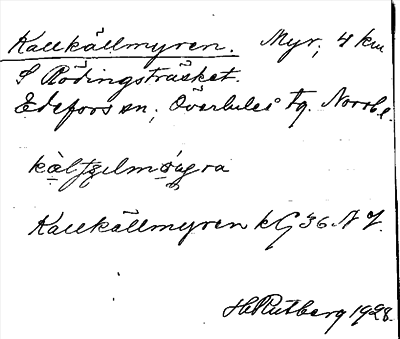 Kallkällmyren. Myr, 4 km
S Rödingsträsket.
Edefors sn, Överluleå tg. Norrb.
Kallkällmyren kG 36 NJ.
H Rutberg 1928.